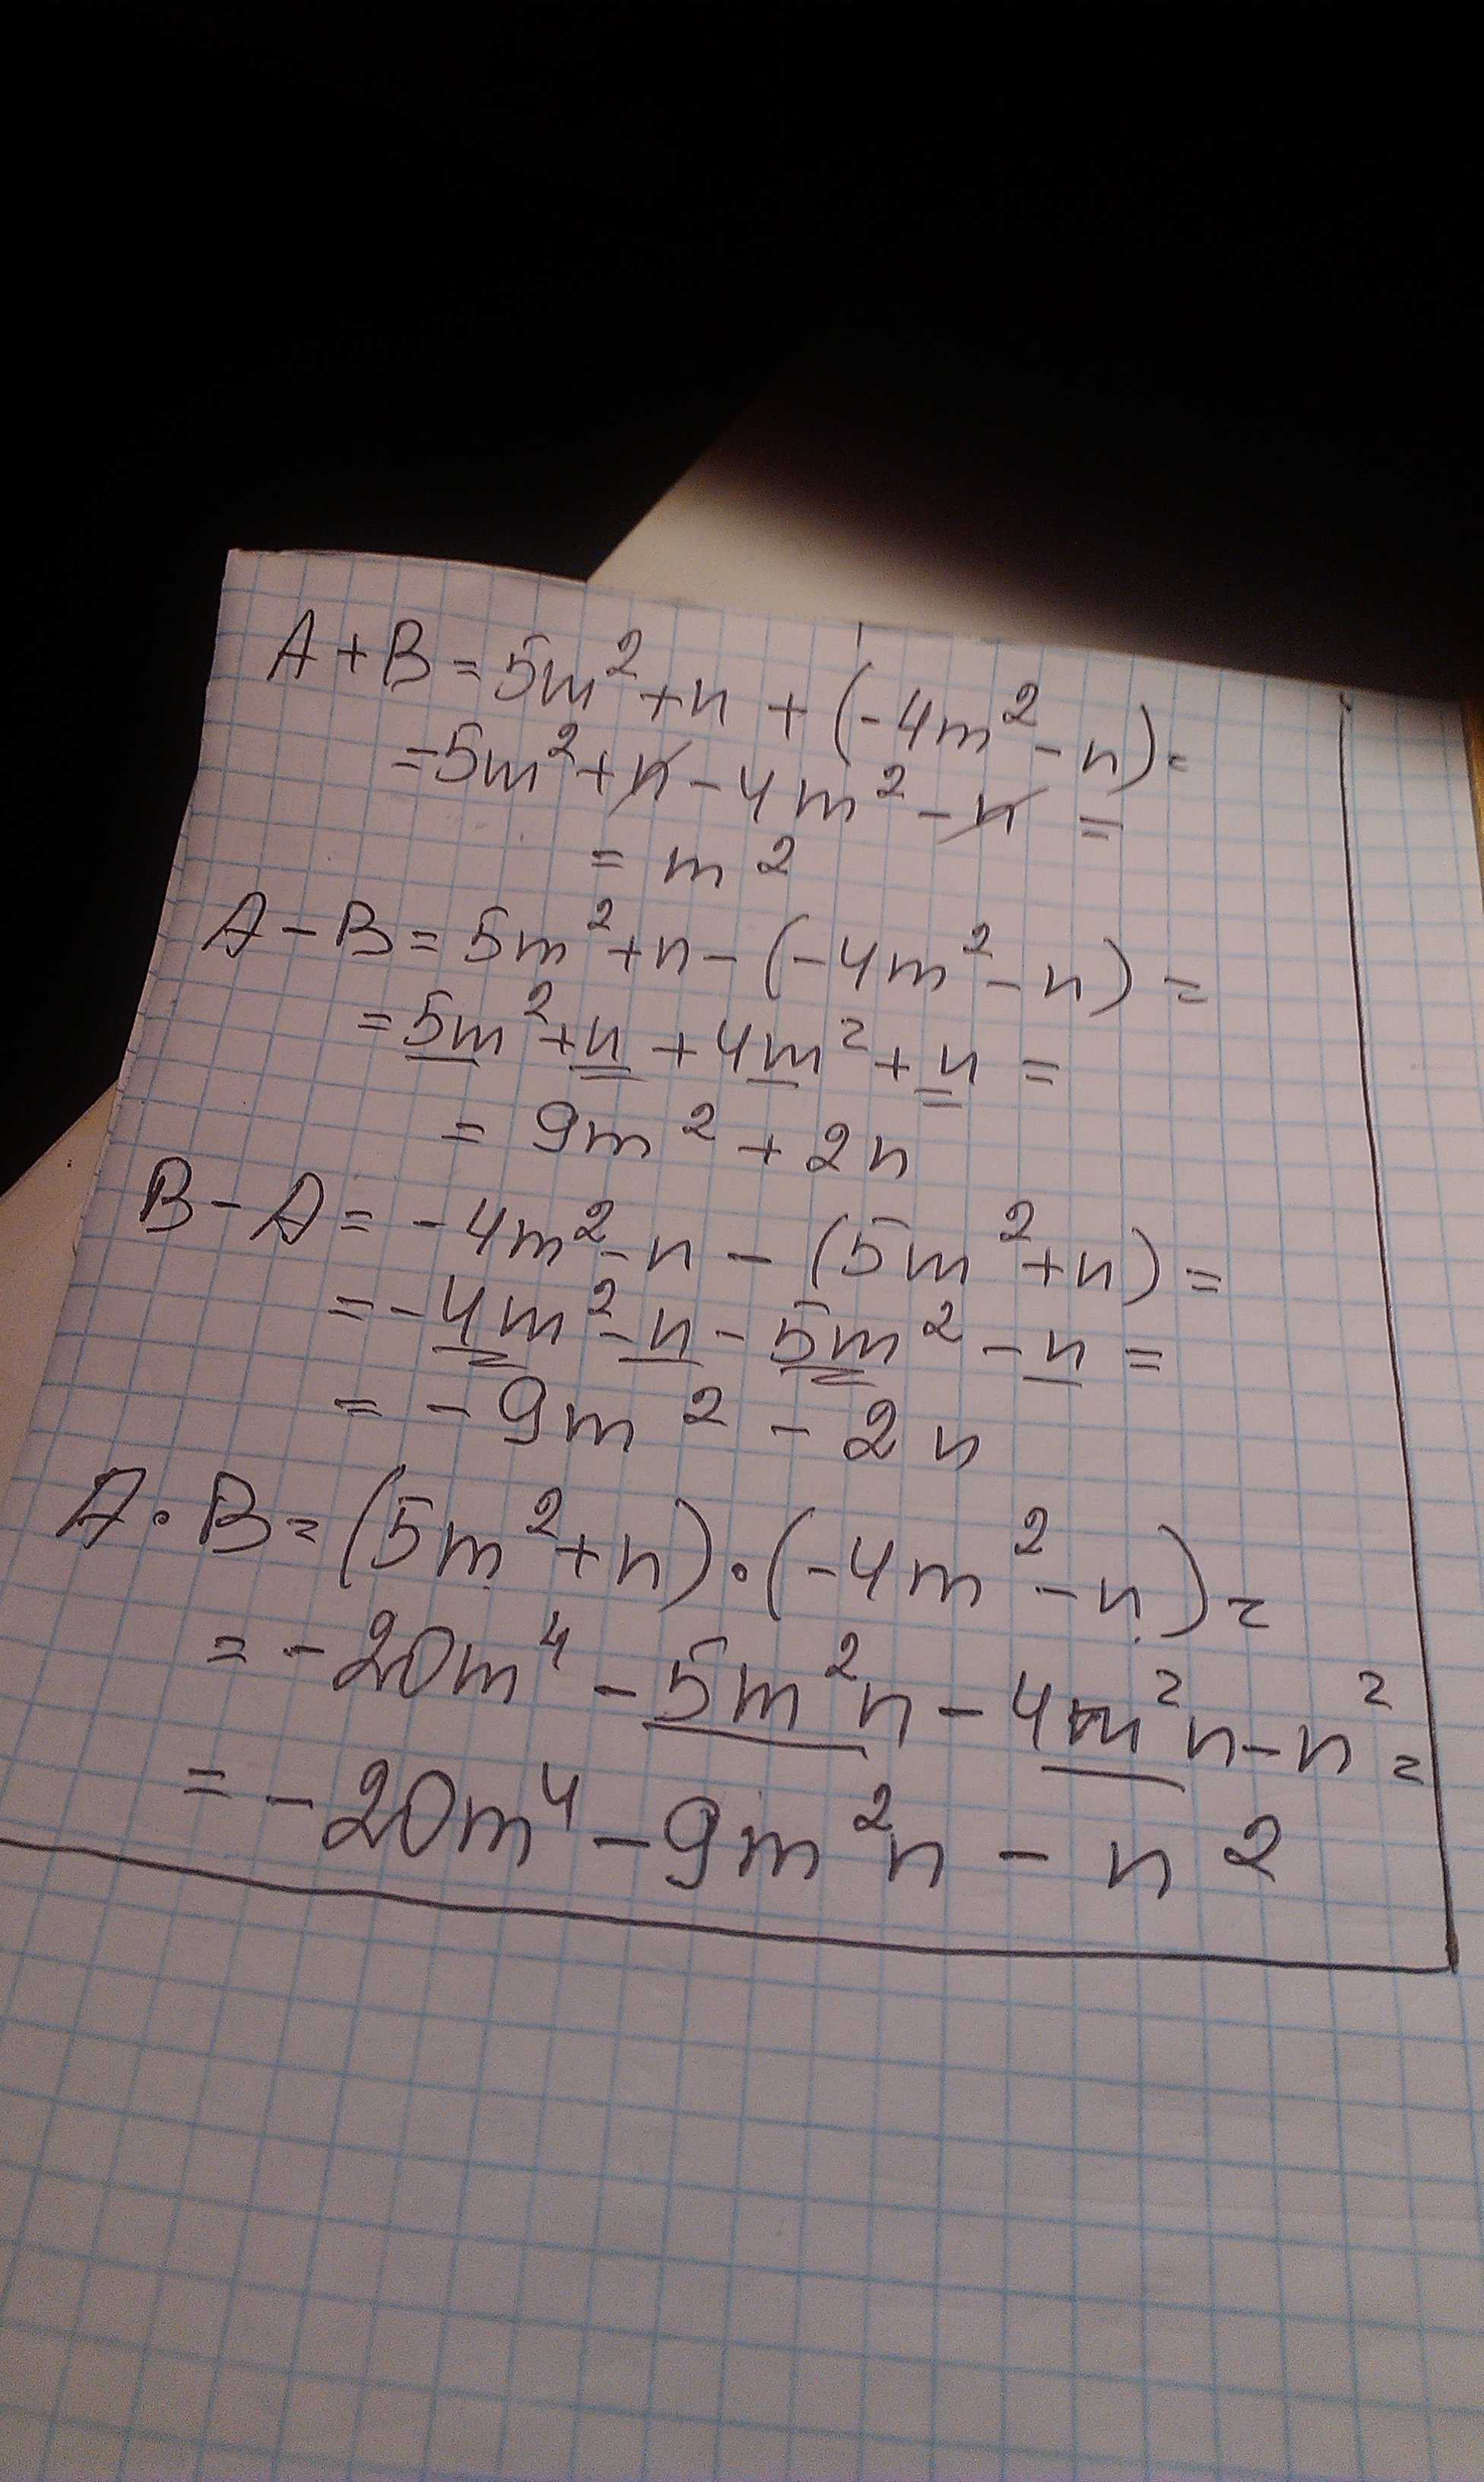 A+B=5m²+n+(-4m²-n)=
=5m²+n-4m²-n=
=m²
A-B=5m²+n-(-4m²-n)=
=5m²+n+4m²+n=
=9m²+2n
B-A=-4m²-n-(5m²+n)=
=-4m²-n-5m²-n=
=-9m²-2n
A·B=(5m²+n)·(-4m²-n)=
=-20m⁴-5m²n-4m²n-n²=
=-20m⁴-9m²n-n²